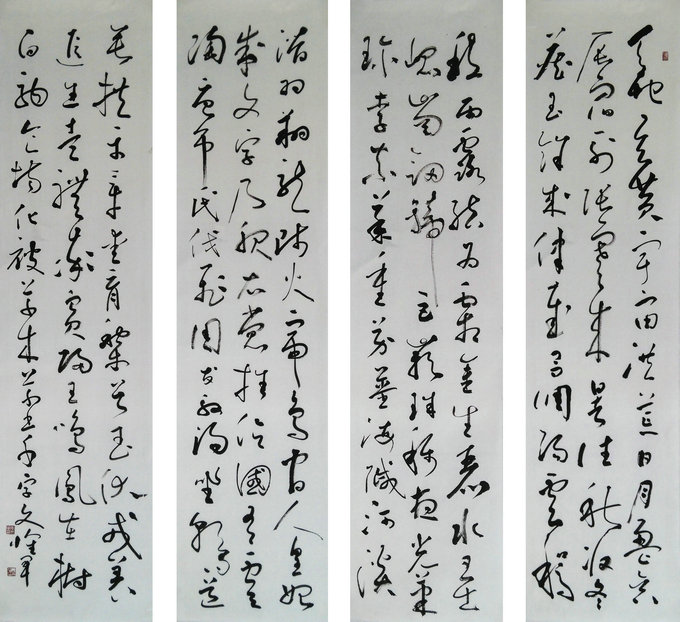 天地玄黃宇宙洪荒日月盈昃
辰宿列張寒來暑往秋收冬
藏閏餘成歲律呂調陽雲騰
致雨露結為霜金生麗水玉出
崑岡劍號巨闕珠稱夜光菓
珍李柰菜重芥薑海鹹河淡
潛羽翔龍師火帝鳥官人皇始
制文字乃服衣裳推位讓國有虞
陶唐弔民伐罪周發殷湯坐朝問道
垂拱平章愛育黎首臣伏戎羌
遐邇壹體率賓歸王鳴鳳在樹
白駒食場化被草木草書千字文